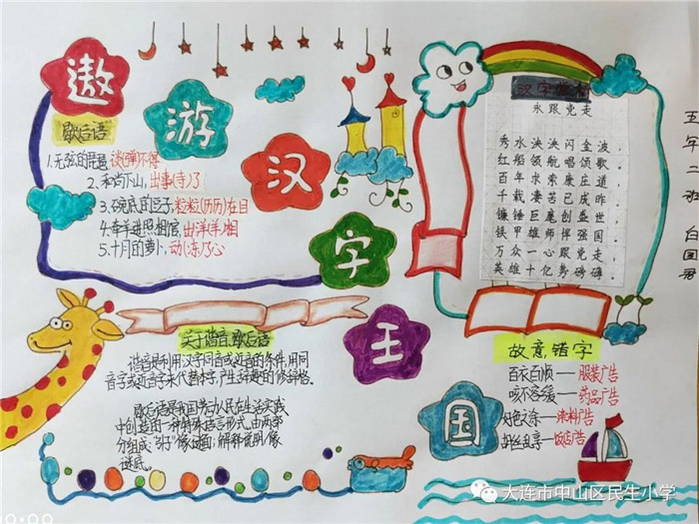 遨游汉字王国
歇后语
1.无弦的琵琶 谈(弹)不得
2.和尚下山,出事(寺)了
3.碗底的豆子 粒粒(历历)在目
4.牵羊进照相馆,出洋(羊)相
5.十月的萝卜,动(冻)了心
永跟党走
秀水泱泱闪金波,
红船领航唱颂歌
百年求索康庄道,
千载凄苦已成昨
镰锤巨魔创盛世
铁甲雄师捍强国
万众一心跟党走,
英雄十亿势磅礴。
五年二班
关于谐音歇后语
谐音即利用汉字同音或近音的条件,用同
音字或近音字来代替本字,产生辞趣的修辞格。
歇后语是我国劳动人民在生活实践
中创造的一种特殊语言形式,由两部
分组成:
谜底。
故意错字
百衣百顺——服装广告
咳不容缓——药品广告
涂料广告
饭店广告
大连市中山区民生小学